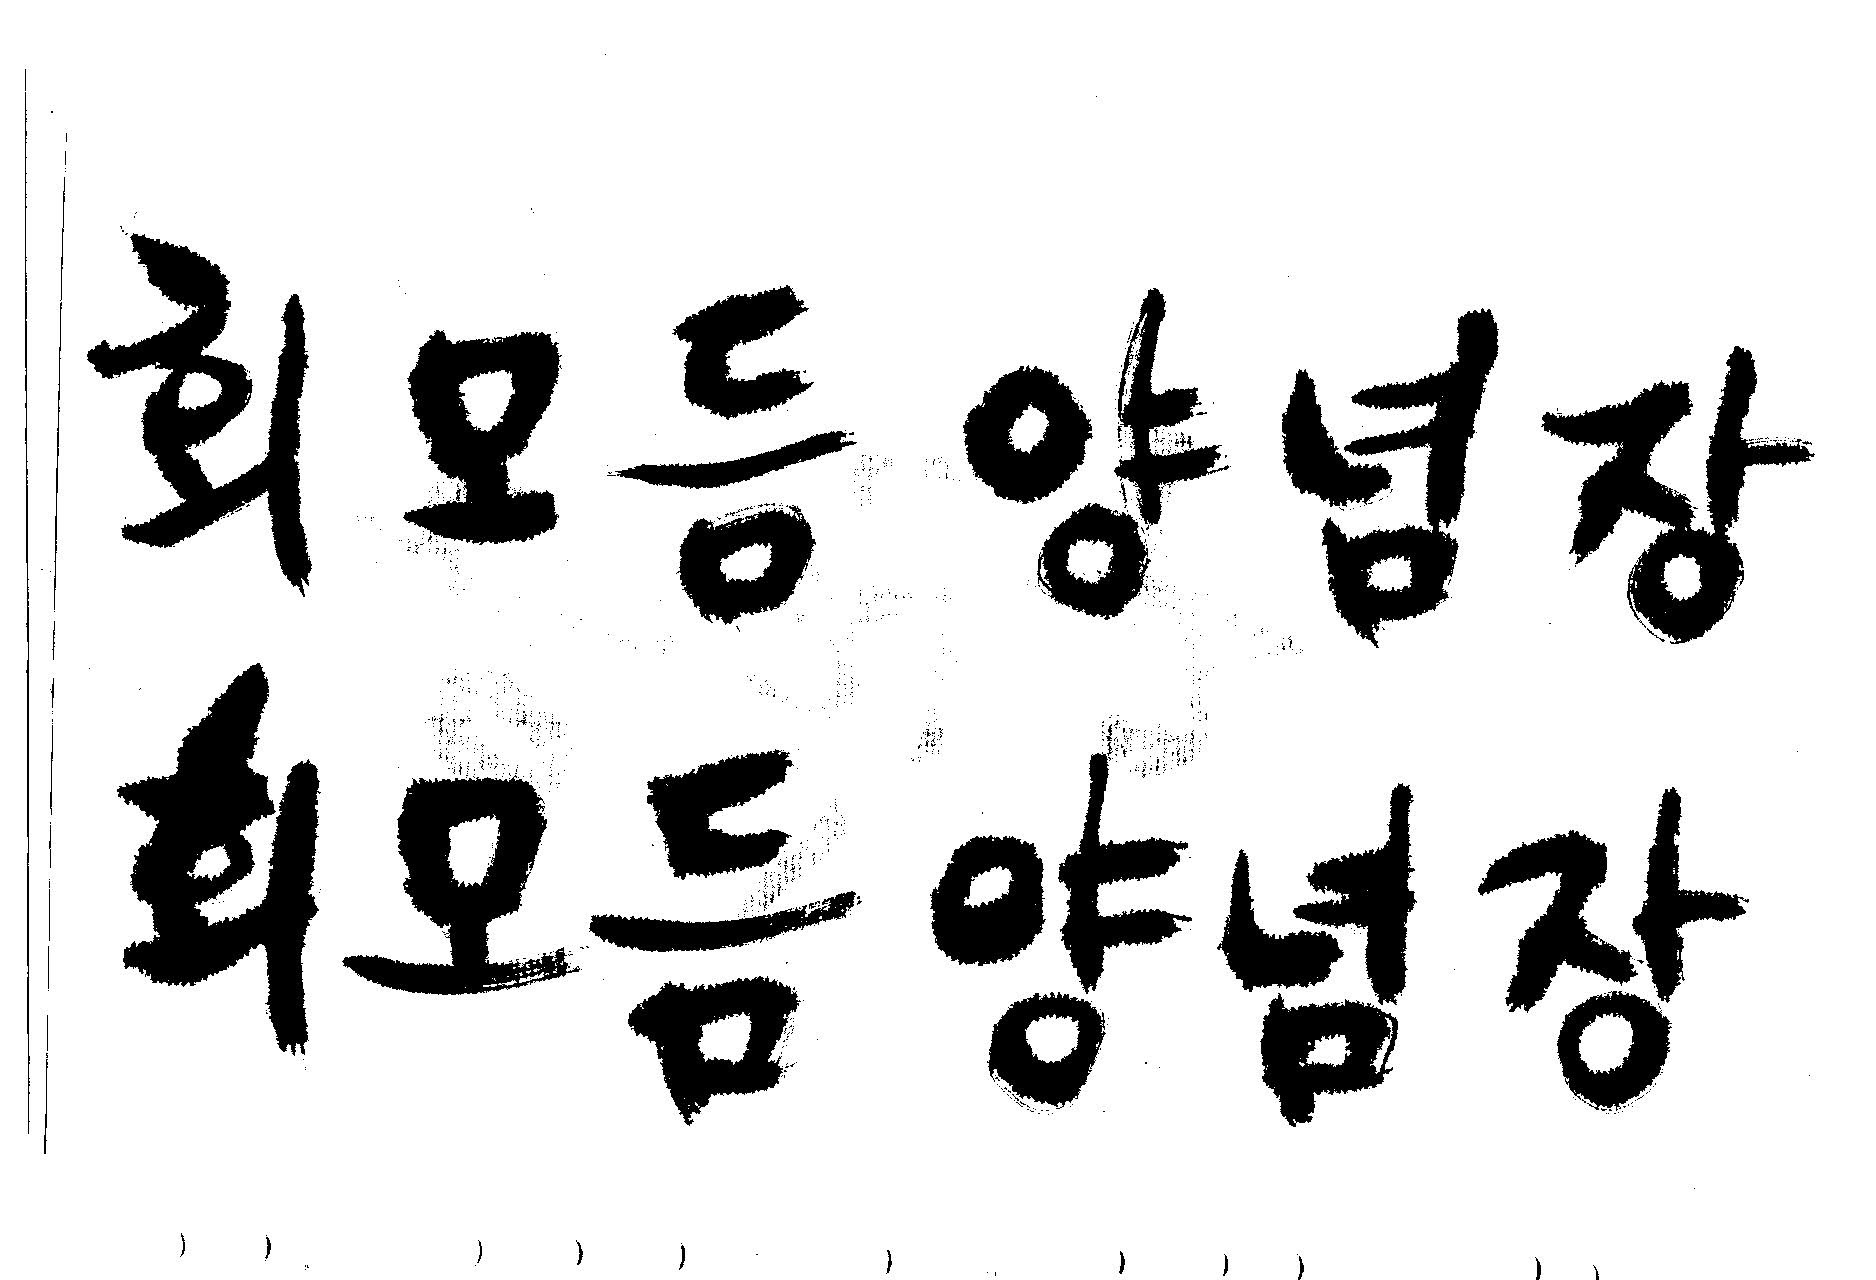 회모듬 양념장
회모듬 양념장